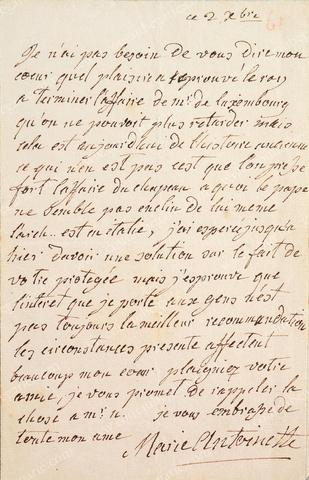 ce 2 xbre
Je n'ai pas besoin de vous dire mon
cœur quel plaisir a eprouvé le roy
a terminer l'affaire de mr de luxembourg
qu'on ne pouvoit plus retarder mais
cela est aujourdhui de l'histoire ancienne
ce qui n'en est pas c'est que l'on presse
fort l'affaire du chapeau a quoi le pape
ne semble pas enclin de lui meme
l'arch.. est en italie, j'ai esperé jusqu'a
hier d'avoir une solution sur le fait de
votre protegée mais j'esprouve que
l'interet que je porte aux gens n'est
pas toujours la meilleur recommandation
les circonstances presente affectent
beaucoup mon cœur plaignez votre
amie, je vous promet de rappeler la
chose a mr n. je vous embrasse de
toute mon ame
Marie Antoinette